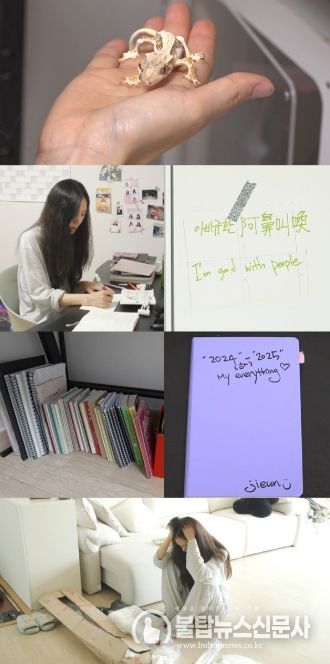 아비규환 阿鼻叫喚
I'm good with people
"2024" - "2025"
My everything♡
jieun
세상을 밝히는 신문
불탑뉴스신문사
www.bultopnews.co.kr